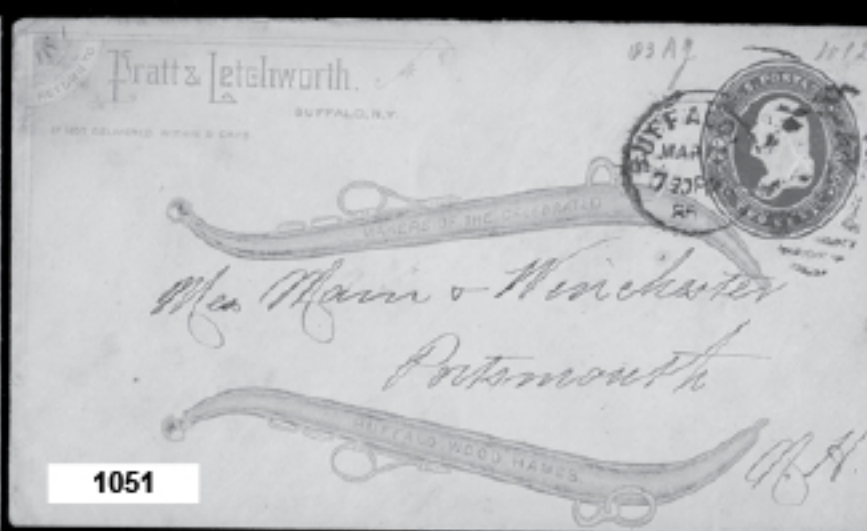 RETURN TO
Pratt & Letchworth.
BUFFALO, N.Y.
IF NOT DELIVERED WITHIN 5 DAYS.
BUFFALO
MAR
7 30P
MAKERS OF THE CELEBRATED
Mes Mann & Winchester
Portsmouth
BUFFALO WOOD HAMES
N.H.
1051